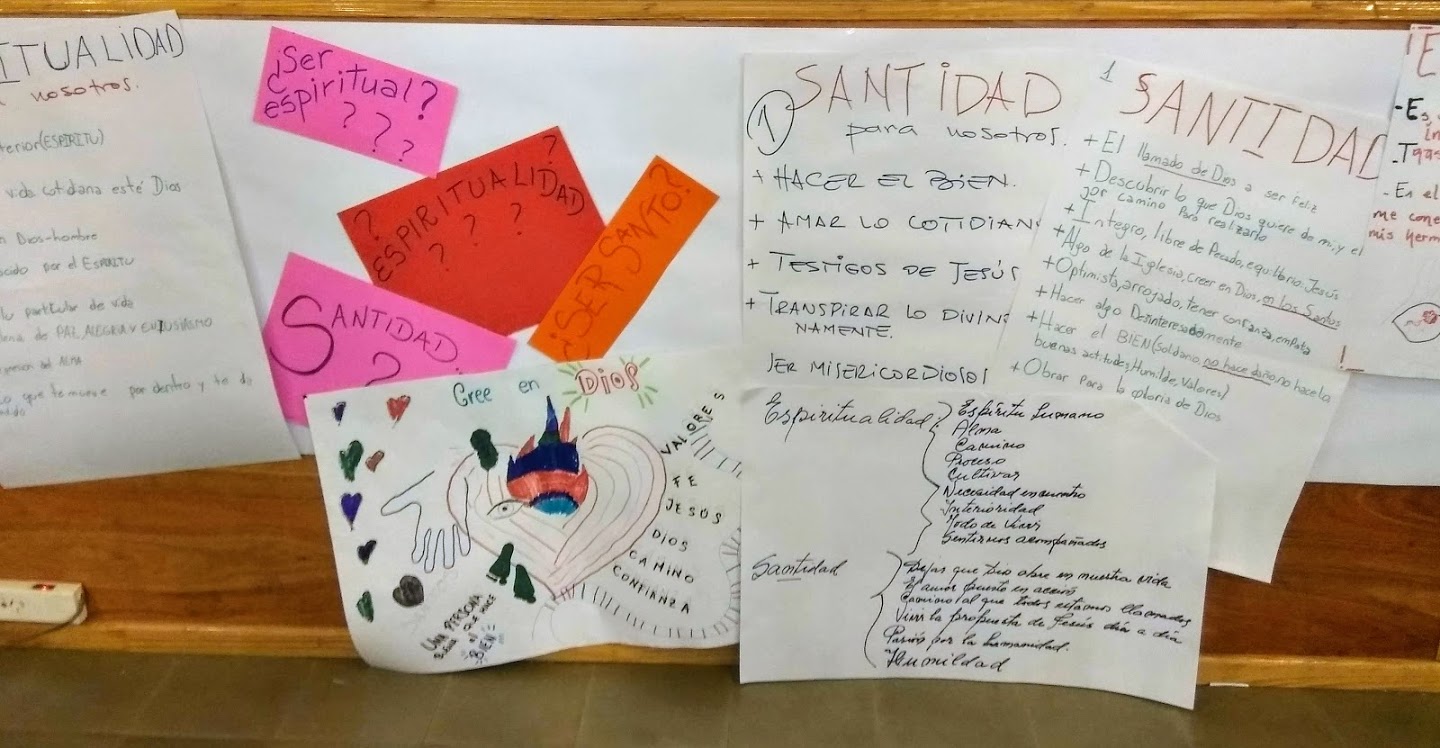 ITUALIDAD
nosotros.
terior (ESPIRITU)
vida cotidiana esté Dios
Dios-hombre
cido por el ESPIRITU
particular de vida
de PAZ, ALEGRIA Y ENTUSIASMO
del ALMA
que te mueve por dentro y te da
¿Ser
espiritual?
? ? ?
? ?
ESPIRITUALIDAD
? ? ?
¿SER SANTO?
SANTIDAD
?
Cree en DIOS
VALORES
FE
JESÚS
DIOS
CAMINO
CONFIANZA
UNA PERSONA
SIGUE el QUE HACE
BIEN
1 SANTIDAD
para nosotros.
+ HACER EL BIEN.
+ AMAR LO COTIDIAN
+ TESTIGOS DE JESÚS
+ TRANSPIRAR LO DIVIN
NAMENTE.
SER MISERICORDIOSOS
Espiritualidad
Espíritu humano
Alma
Camino
Proceso
Cultivar
Necesidad encuentro
Interioridad
Modo de vivir
Sentirnos acompañados
Santidad
Dejar que Dios obre en nuestra vida
El amor puesto en acción
Camino al que todos estamos llamados
Vivir la propuesta de Jesús día a día
Pasión por la humanidad.
Humildad
1 SANTIDAD
+ El llamado de Dios a ser feliz
+ Descubrir lo que Dios quiere de mi, y el
camino para realizarlo
+ Integro, libre de Pecado, equilibrio. Jesús
+ Algo de la Iglesia, creer en Dios, en los Santos
+ Optimista, arrojado, tener confianza, empatia
+ Hacer algo Desinteresadamente
+ Hacer el BIEN (solidario, no hace daño, no hace la
buenas actitudes, Humilde, Valores)
+ Obrar para la gloria de Dios
E
- Es
in
- T
- En el
me cone
mis herm